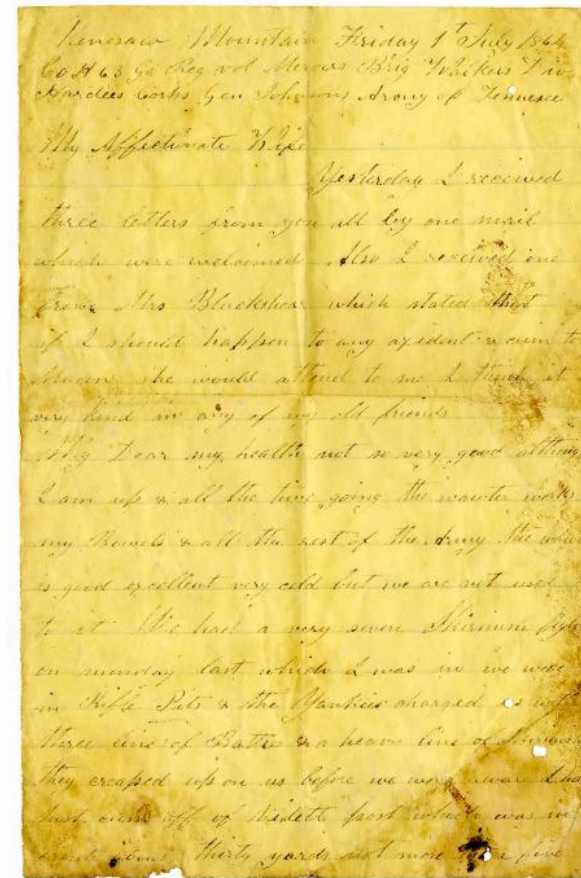 Kenesaw Mountain Friday 1st July 1864
Co H 63 Ga Reg vol Mercers Brig Walkers Div
Hardees Corks Gen Johnsons Army of Tennessee
My Affectionate Wife
Yesterday I received
three letters from you all by one mail
which were welcomed Also I received one
from Mrs Blackshear which stated that
if I should happen to any axident & cum to
Macon she would attend to me I think it
very kind in any of my old friends
My Dear my health not so very good although
I am up & all the time going the wawter works
my Bowels & all the rest of the Army the
is good excellent very cold but we are not used
to it We had a very severe Skirmish
on monday last which I was in we were
in Rifle Pits & the Yankies charged us with
three line of Battle & a heavy line of
they creaped up on us before we were aware I
Just off of Vidett post which was in
thirty yards not more five